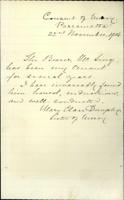 Convent of Mercy
Parramatta
22nd November, 190
The Bearer, Mr Sing,
has been my tenant
for several years
I have invariably found
him honest, industrious,
and well conducted.
Mary Clare
Sister of Mercy